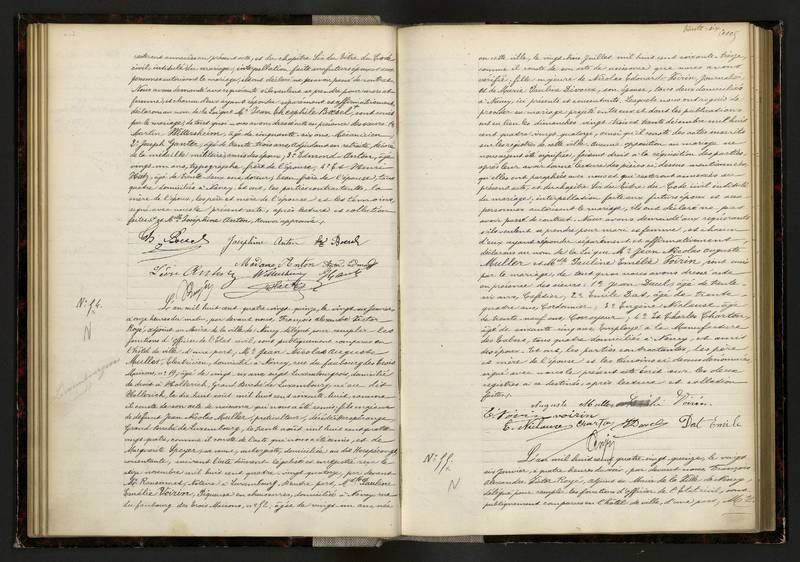 resteront annexées au présent acte, et du chapitre six du titre du Code
civil, intitulé du mariage, interpellation faite aux futurs époux et aux
personnes autorisant le mariage, ils ont déclaré ne pas avoir passé de contrat.
Nous avons demandé aux requérants s'ils veulent se prendre pour mari et
femme, et chacun d'eux ayant répondu séparément et affirmativement,
déclarons au nom de la loi que Mr Jean Théophile Bœsel et sont unis
par le mariage; de tout quoi nous avons dressé acte en présence des sieurs: 1o
Martin Wittersheim, âgé de cinquante-six ans, Mécanicien,
2o Joseph Gantor, âgé de trente trois ans, adjudant en retraite, décoré
de la médaille militaire, amis des époux, 3o Edouard Anton, âgé
vingt-un ans, typographe, frère de l'épouse, 4o et Henri
âgé de trente deux ans, beau-frère de l'épouse, tous
quatre domiciliés à Nancy. Et ont, les parties contractantes, la
mère de l'époux, les père et mère de l'épouse et les témoins,
signé avec nous le présent acte, après lecture et collation
faites. et Mlle Joséphine Anton,
Th. Bœsel Joséphine Anton Bœsel
Madame Anton
Wittersheim
No 54.
N
L'an mil huit cent quatre vingt quinze, le vingt six janvier,
à onze heures du matin, par devant nous François Alexandre Victor
Royé, adjoint au Maire de la ville de Nancy, délégué pour remplir les
fonctions d'officier de l'Etat civil, sont publiquement comparus en
l'hôtel de ville, d'une part, Mr Jean Nicolas Auguste
Muller, Electricien, domicilié à Nancy, rue du faubourg des trois
Maisons, no 19, âgé de vingt six ans, sujet Luxembourgeois, domicilié
de droit à Hollerich, Grand Duché de Luxembourg, né au dit
Hollerich, le dix huit août mil huit cent soixante huit, comme
il conste de son acte de naissance qui nous a été remis; fils majeur
de défunt Jean Nicolas Muller, particulier, décédé
Grand Duché de Luxembourg, le trente août mil huit cent quatre
vingt quatre, comme il conste de l'acte qui nous a été remis, et de
Marguerite Speyer, sa veuve, autorisante, domiciliée au dit Hesperange
consentante, suivant l'acte dûment légalisé et enregistré reçu le
seize novembre mil huit cent quatre vingt quatorze, par devant
Me Notaire à Luxembourg. D'autre part, Mlle Pauline
Emélie Voirin, Piqueuse en chaussures, domiciliée à Nancy, rue
du faubourg des trois Maisons, no 52, âgée de vingt-un ans, née
Luxembourgeois
trente-six
en cette ville, le vingt trois Juillet mil huit cent soixante treize,
comme il conste de son acte de naissance que nous avons
vérifié; fille majeure de Nicolas Edouard Voirin, Journalier,
et de Marie Pauline son épouse, tous deux domiciliés
à Nancy, ici présents et consentants. Lesquels nous ont requis de
procéder au mariage projeté entre eux et dont les publications
ont eu lieu les dimanches vingt trois et trente décembre mil huit
cent quatre vingt quatorze, ainsi qu'il conste des actes inscrits
sur les registres de cette ville. Aucune opposition au mariage ne
nous ayant été signifiée, faisant droit à la réquisition des parties,
après leur avoir donné lecture des pièces ci-dessus mentionnées,
qu'elles ont paraphées avec nous et qui resteront annexées au
présent acte, et du chapitre six du titre du Code civil intitulé
du mariage, interpellation faite aux futurs époux et aux
personnes autorisant le mariage, ils ont déclaré ne pas
avoir passé de contrat. Nous avons demandé aux requérants
s'ils veulent se prendre pour mari et femme, et chacun
d'eux ayant répondu séparément et affirmativement,
déclarons au nom de la loi que Mr Jean Nicolas Auguste
Muller et Mlle Pauline Emélie Voirin sont unis
par le mariage; de tout quoi nous avons dressé acte
en présence des sieurs: 1o Jean Paul, âgé de trente-
six ans, 2o Emile Dat, âgé de trente-
quatre ans, Cordonnier, 3o Eugène Nicloux, âgé
de trente neuf ans, Corroyeur, 4o et Charles Charton,
âgé de soixante cinq ans, Employé à la Manufacture
des tabacs, tous quatre domiciliés à Nancy, et amis
des époux. Et ont, les parties contractantes, les père
et mère de l'épouse et les témoins ci-dessus dénommés,
signé avec nous le présent acte écrit sur les deux
registres à ce destinés, après lecture et collation
faites.
Auguste Muller Voirin
E. Voirin voirin
Charton Dat Emile
No 55.
N
L'an mil huit cent quatre vingt quinze, le vingt
six Janvier, à quatre heures du soir, par devant nous François
Alexandre Victor Royé, adjoint au Maire de la Ville de Nancy,
délégué pour remplir les fonctions d'officier de l'Etat civil, sont
publiquement comparus en l'hôtel de ville, d'une part, Mr